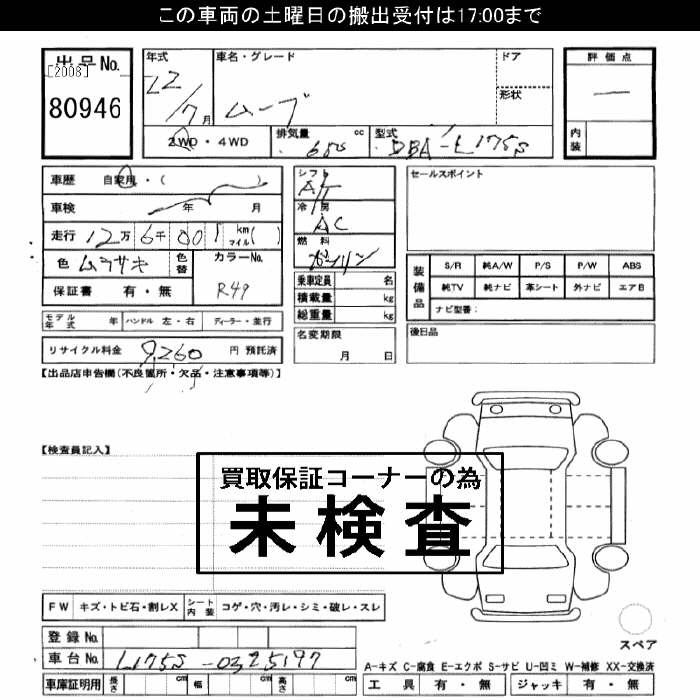 この車両の土曜日の搬出受付は17:00まで
出品No.
[2008]
80946
年式
車名・グレード
ドア
形状
評価点
12/7月
ムーブ
内装
2WD・4WD
排気量 cc
型式
DBA-L175S
車歴 自家用・( )
車検 年 月
走行 12万 6千 001 km マイル( )
色 ムラサキ
色替
カラーNo.
R49
保証書 有・無
シフト
AT
冷房
AC
燃料
ガソリン
乗車定員 名
積載量 kg
総重量 kg
セールスポイント
装備品
S/R 純A/W P/S P/W ABS
純TV 純ナビ 革シート 外ナビ エアB
ナビ型番:
モデル年式 年 ハンドル 左・右 ディーラー・並行
リサイクル料金 9,260 円 預託済
名変期限
月 日
後日品
【出品店申告欄(不良箇所・欠品・注意事項等)】
【検査員記入】
買取保証コーナーの為
未検査
FW キズ・トビ石・割レX シート内装 コゲ・穴・汚レ・シミ・破レ・スレ
登録No.
車台No. L175S-0325197
車庫証明用 長さ cm 幅 cm 高さ cm
スペア
A-キズ C-腐食 E-エクボ S-サビ U-凹ミ W-補修 XX-交換済
工具 有・無 ジャッキ 有・無